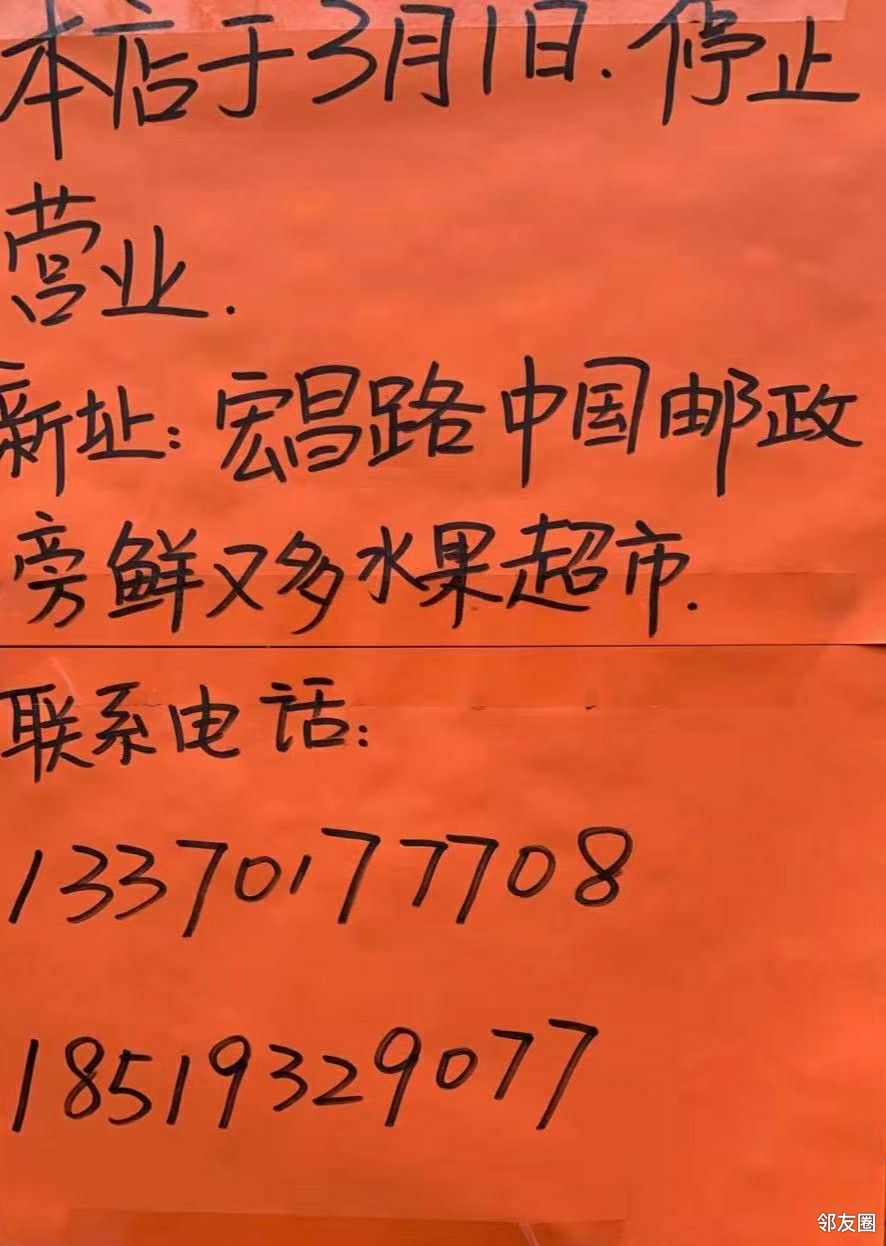 本店于3月1日.停止
营业.
新址:宏昌路中国邮政
旁鲜又多水果超市.
联系电话:
13370177708
18519329077
邻友圈